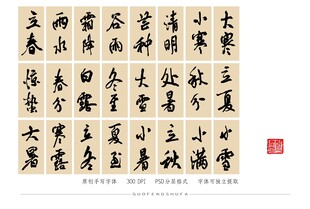 立春
雨水
霜降
谷雨
芒种
清明
小寒
大寒
惊蛰
春分
白露
冬至
大雪
处暑
秋分
立夏
大暑
寒露
立冬
夏至
小暑
立秋
小满
小雪
原创手写字体 300 DPI PSD分层格式 字体可独立提取
GUOFENGSHUFA